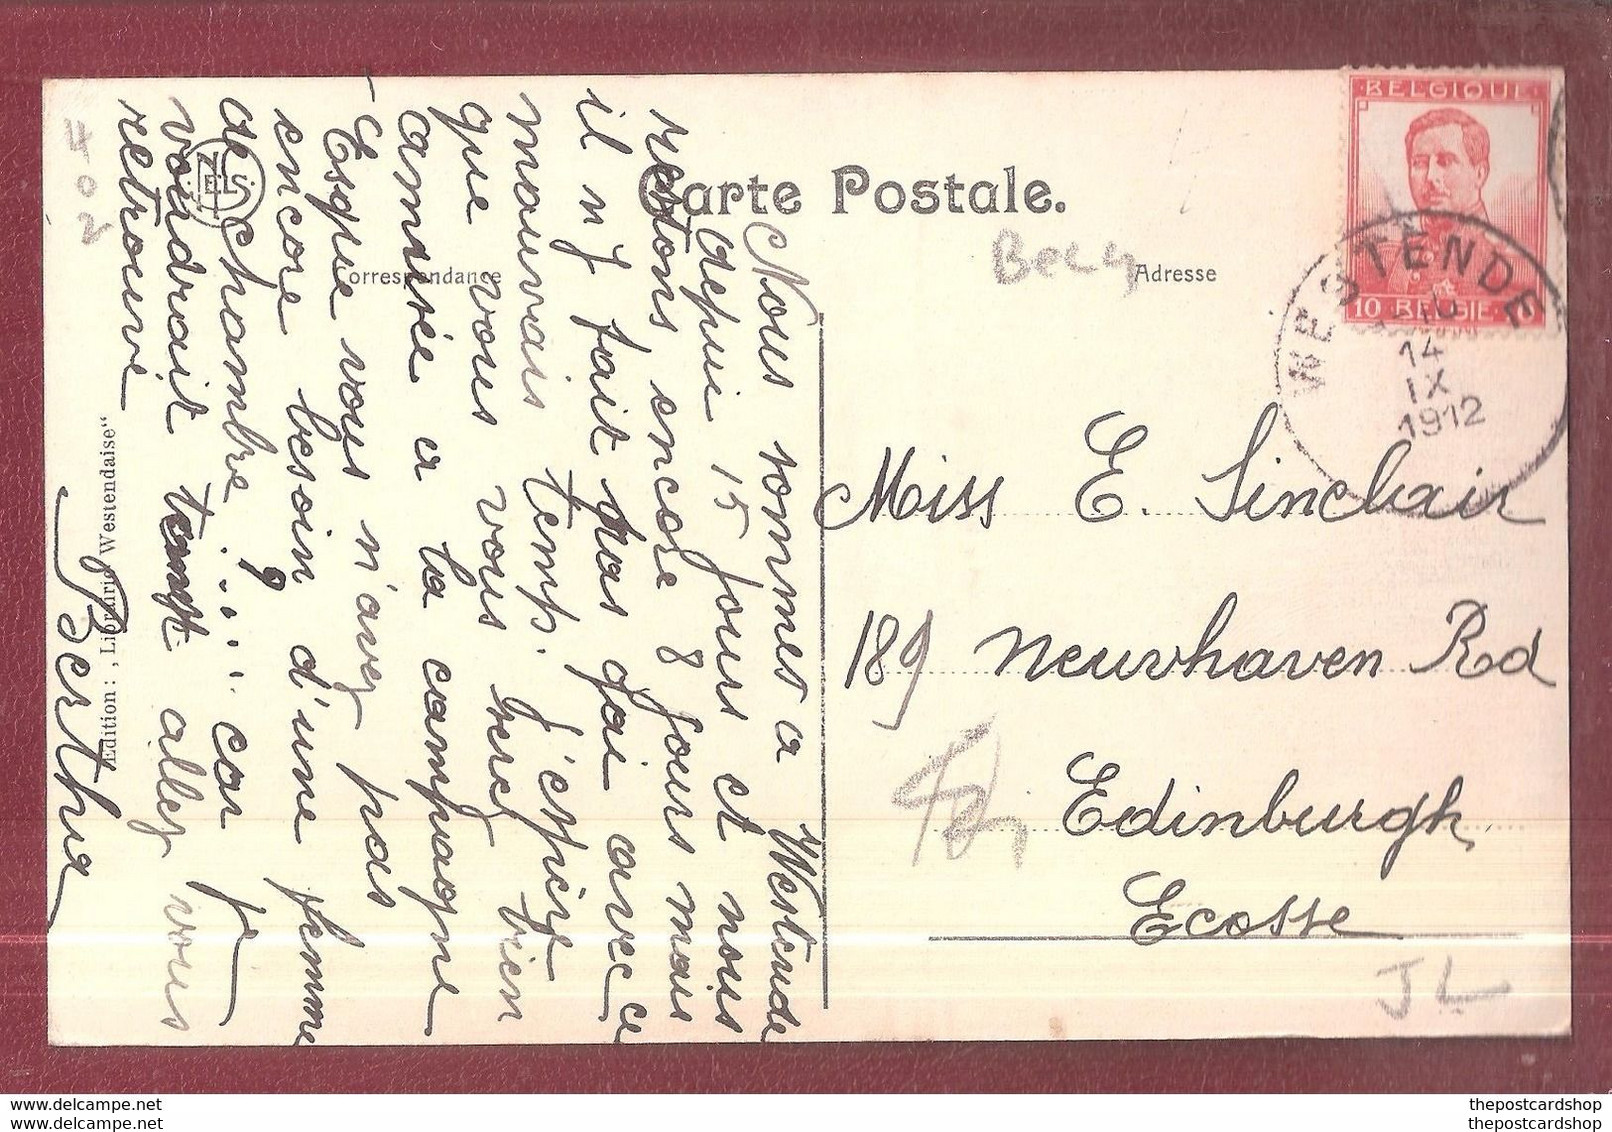 Carte Postale.
Correspondance
Adresse
BELGIQUE
10 BELGIE
WESTENDE
14
IX
1912
Belg
Miss E. Sinclair
189 Neuvhaven Rd
Edinburgh
Ecosse
JL
Nous sommes a Westende
depuis 15 jours et nous
restons encore 8 jours mais
il n'y fait pas gai avec ce
mauvais temps. J'espère
que vous vous serez bien
amusée a la campagne
Esque vous n'avez pas
encore besoin d'une femme
de chambre ? .... car je
voudrait allez vous
retrouvé
Bertha
Edition: „Librairie Westendaise“
402
NELS
thepostcardshop
thepostcardshop
thepostcardshop
thepostcardshop